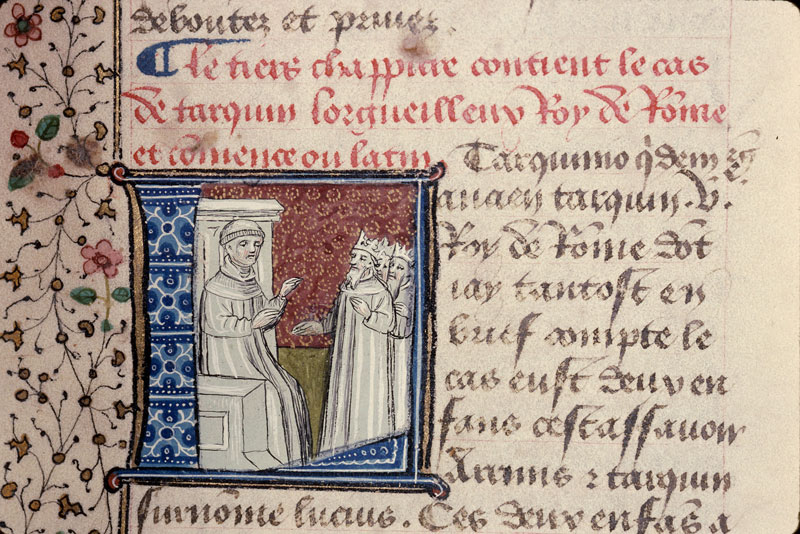 debouter et priuer.
Le tiers chappitre contient le cas
de tarquin lorgueilleux Roy de Rome
et cõmence ou latin Tarquinio
L ancien tarquin .v.
Roy de Rõme dõt
iay tantost en
brief compte le
cas eust deux en
fans cest assauoir
Arrnus ⁊ tarquin
surnõme lucius. Ces deux enfãs a